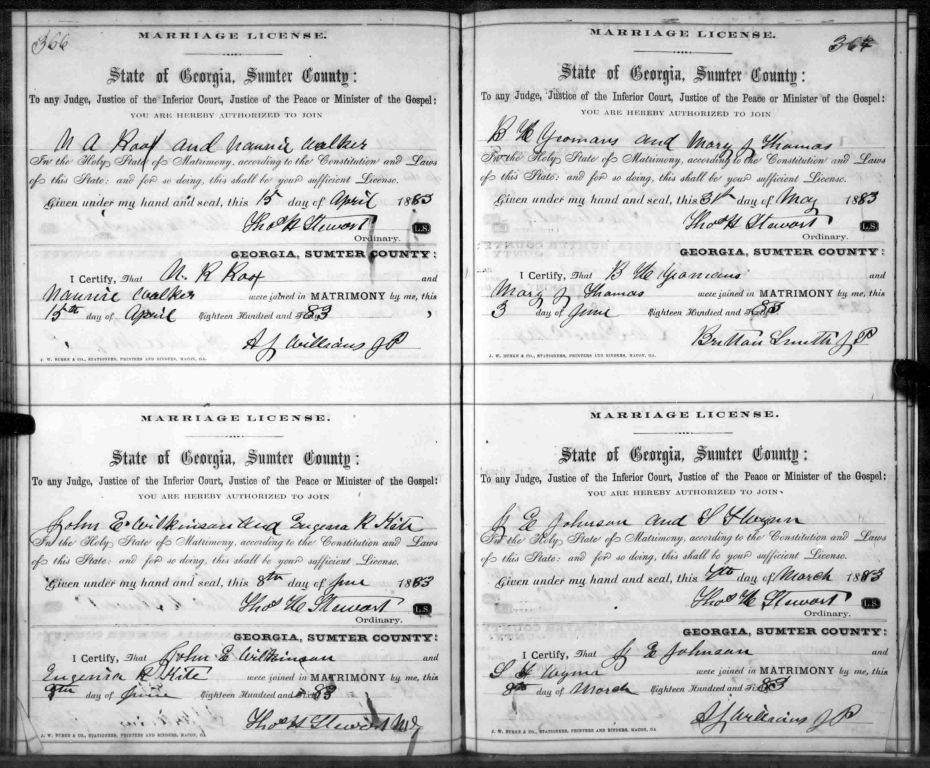 366
MARRIAGE LICENSE.
State of Georgia, Sumter County:
To any Judge, Justice of the Inferior Court, Justice of the Peace or Minister of the Gospel:
YOU ARE HEREBY AUTHORIZED TO JOIN
and Nannie Walker
In the Holy State of Matrimony, according to the Constitution and Laws
of this State: and for so doing, this shall be your sufficient License.
Given under my hand and seal, this 15 day of April 1883
Thos H Stewart L.S.
Ordinary.
GEORGIA, SUMTER COUNTY:
I Certify, That and
Nannie Walker were joined in MATRIMONY by me, this
15th day of April Eighteen Hundred and 83
A J Williams J P
J. W. BURKE & CO., STATIONERS, PRINTERS AND BINDERS, MACON, GA.
MARRIAGE LICENSE.
State of Georgia, Sumter County:
To any Judge, Justice of the Inferior Court, Justice of the Peace or Minister of the Gospel:
YOU ARE HEREBY AUTHORIZED TO JOIN
John E Wilkinson and Eugenia R Kite
In the Holy State of Matrimony, according to the Constitution and Laws
of this State: and for so doing, this shall be your sufficient License.
Given under my hand and seal, this 8th day of June 1883
Thos H Stewart L.S.
Ordinary.
GEORGIA, SUMTER COUNTY:
I Certify, That John E Wilkinson and
Eugenia R Kite were joined in MATRIMONY by me, this
day of June Eighteen Hundred and 83
Thos H Stewart
J. W. BURKE & CO., STATIONERS, PRINTERS AND BINDERS, MACON, GA.
367
MARRIAGE LICENSE.
State of Georgia, Sumter County:
To any Judge, Justice of the Inferior Court, Justice of the Peace or Minister of the Gospel:
YOU ARE HEREBY AUTHORIZED TO JOIN
B H Yeomans and Mary J Thomas
In the Holy State of Matrimony, according to the Constitution and Laws
of this State: and for so doing, this shall be your sufficient License.
Given under my hand and seal, this 31st day of May 1883
Thos H Stewart L.S.
Ordinary.
GEORGIA, SUMTER COUNTY:
I Certify, That B H Yomans and
Mary J Thomas were joined in MATRIMONY by me, this
3 day of June Eighteen Hundred and 83
Britton Smith J P
J. W. BURKE & CO., STATIONERS, PRINTERS AND BINDERS, MACON, GA.
MARRIAGE LICENSE.
State of Georgia, Sumter County:
To any Judge, Justice of the Inferior Court, Justice of the Peace or Minister of the Gospel:
YOU ARE HEREBY AUTHORIZED TO JOIN
J E Johnson and
In the Holy State of Matrimony, according to the Constitution and Laws
of this State: and for so doing, this shall be your sufficient License.
Given under my hand and seal, this 7th day of March 1883
Thos H Stewart L.S.
Ordinary.
GEORGIA, SUMTER COUNTY:
I Certify, That J E Johnson and
were joined in MATRIMONY by me, this
day of March Eighteen Hundred and 83
A J Williams J P
J. W. BURKE & CO., STATIONERS, PRINTERS AND BINDERS, MACON, GA